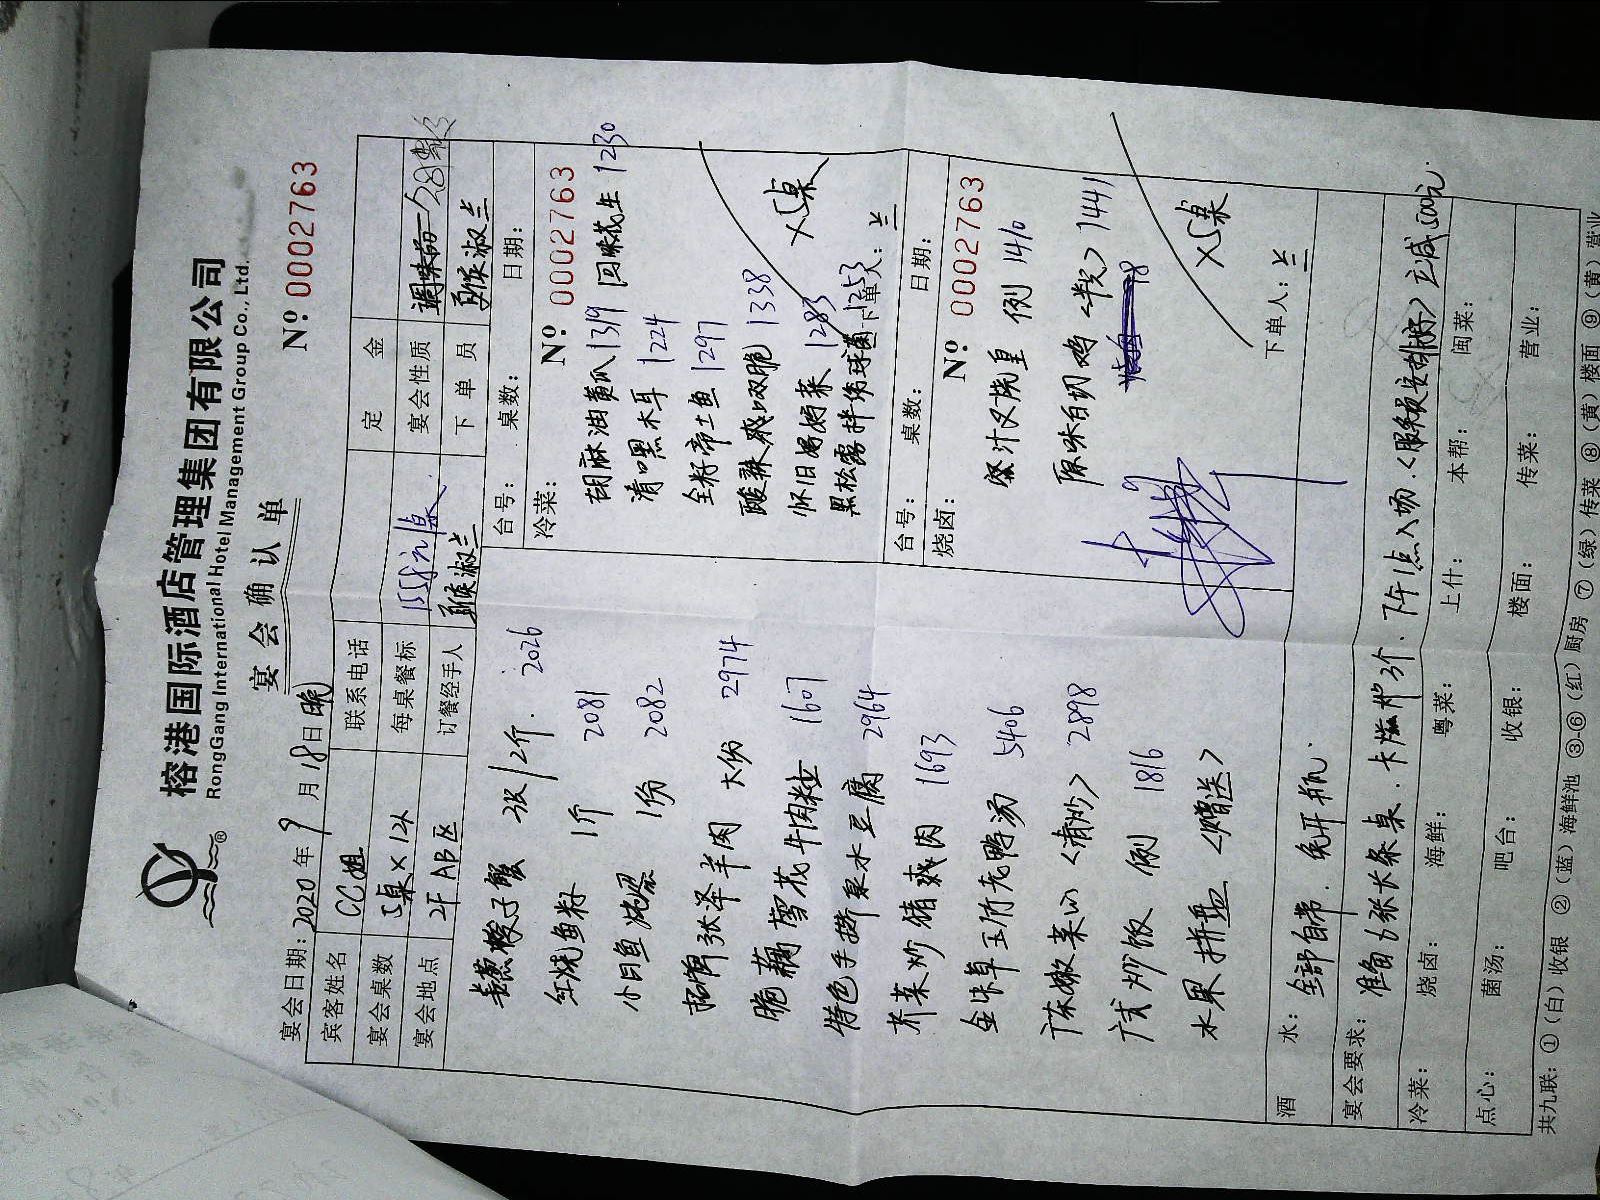 榕港国际酒店管理集团有限公司
RongGang International Hotel Management Group Co., Ltd.
宴会确认单
Nº 0002763
宴会日期：2020年9月18日晚
宾客姓名 CC姐 联系电话 定金
宴会桌数 5桌×12人 每桌餐标 宴会性质
宴会地点 2F AB区 订餐经手人 淑兰 下单员 淑兰
2只 1.2斤 2026
红烧鱼籽 1斤 2081
小白鱼 1份 2082
招牌张泽羊肉 大份 2974
脆藕雪花牛肉粒 1607
特色手磨泉水豆腐 2964
芥菜炒猪颈肉 1693
玉竹老鸭汤 5406
广东嫩菜心〈清炒〉 2898
广式炒饭 例 1816
水果拼盘〈赠送〉
台号： 桌数： 日期：
冷菜： Nº 0002763
胡麻油黄瓜 1319 回味花生 1230
清口黑木耳 1224
1297
酸辣爽口双脆 1338
怀旧 1283
黑松露拌 1253
×5桌
下单人：兰
台号： 桌数： 日期：
烧卤： Nº 0002763
蜜汁叉烧皇 例 1410
原味白切鸡〈半只〉 1441
×5桌
下单人：兰
酒水： 全部自带．免开瓶．
宴会要求： 准备6张长条桌．下午1点入场．
冷菜： 烧卤： 海鲜： 粤菜： 上什： 本帮： 闽菜：
点心： 菌汤： 吧台： 收银： 楼面： 传菜： 营业：
共九联：①（白）收银 ②（蓝）海鲜池 ③-⑥（红）厨房 ⑦（绿）传菜 ⑧（黄）楼面 ⑨（黄）营业